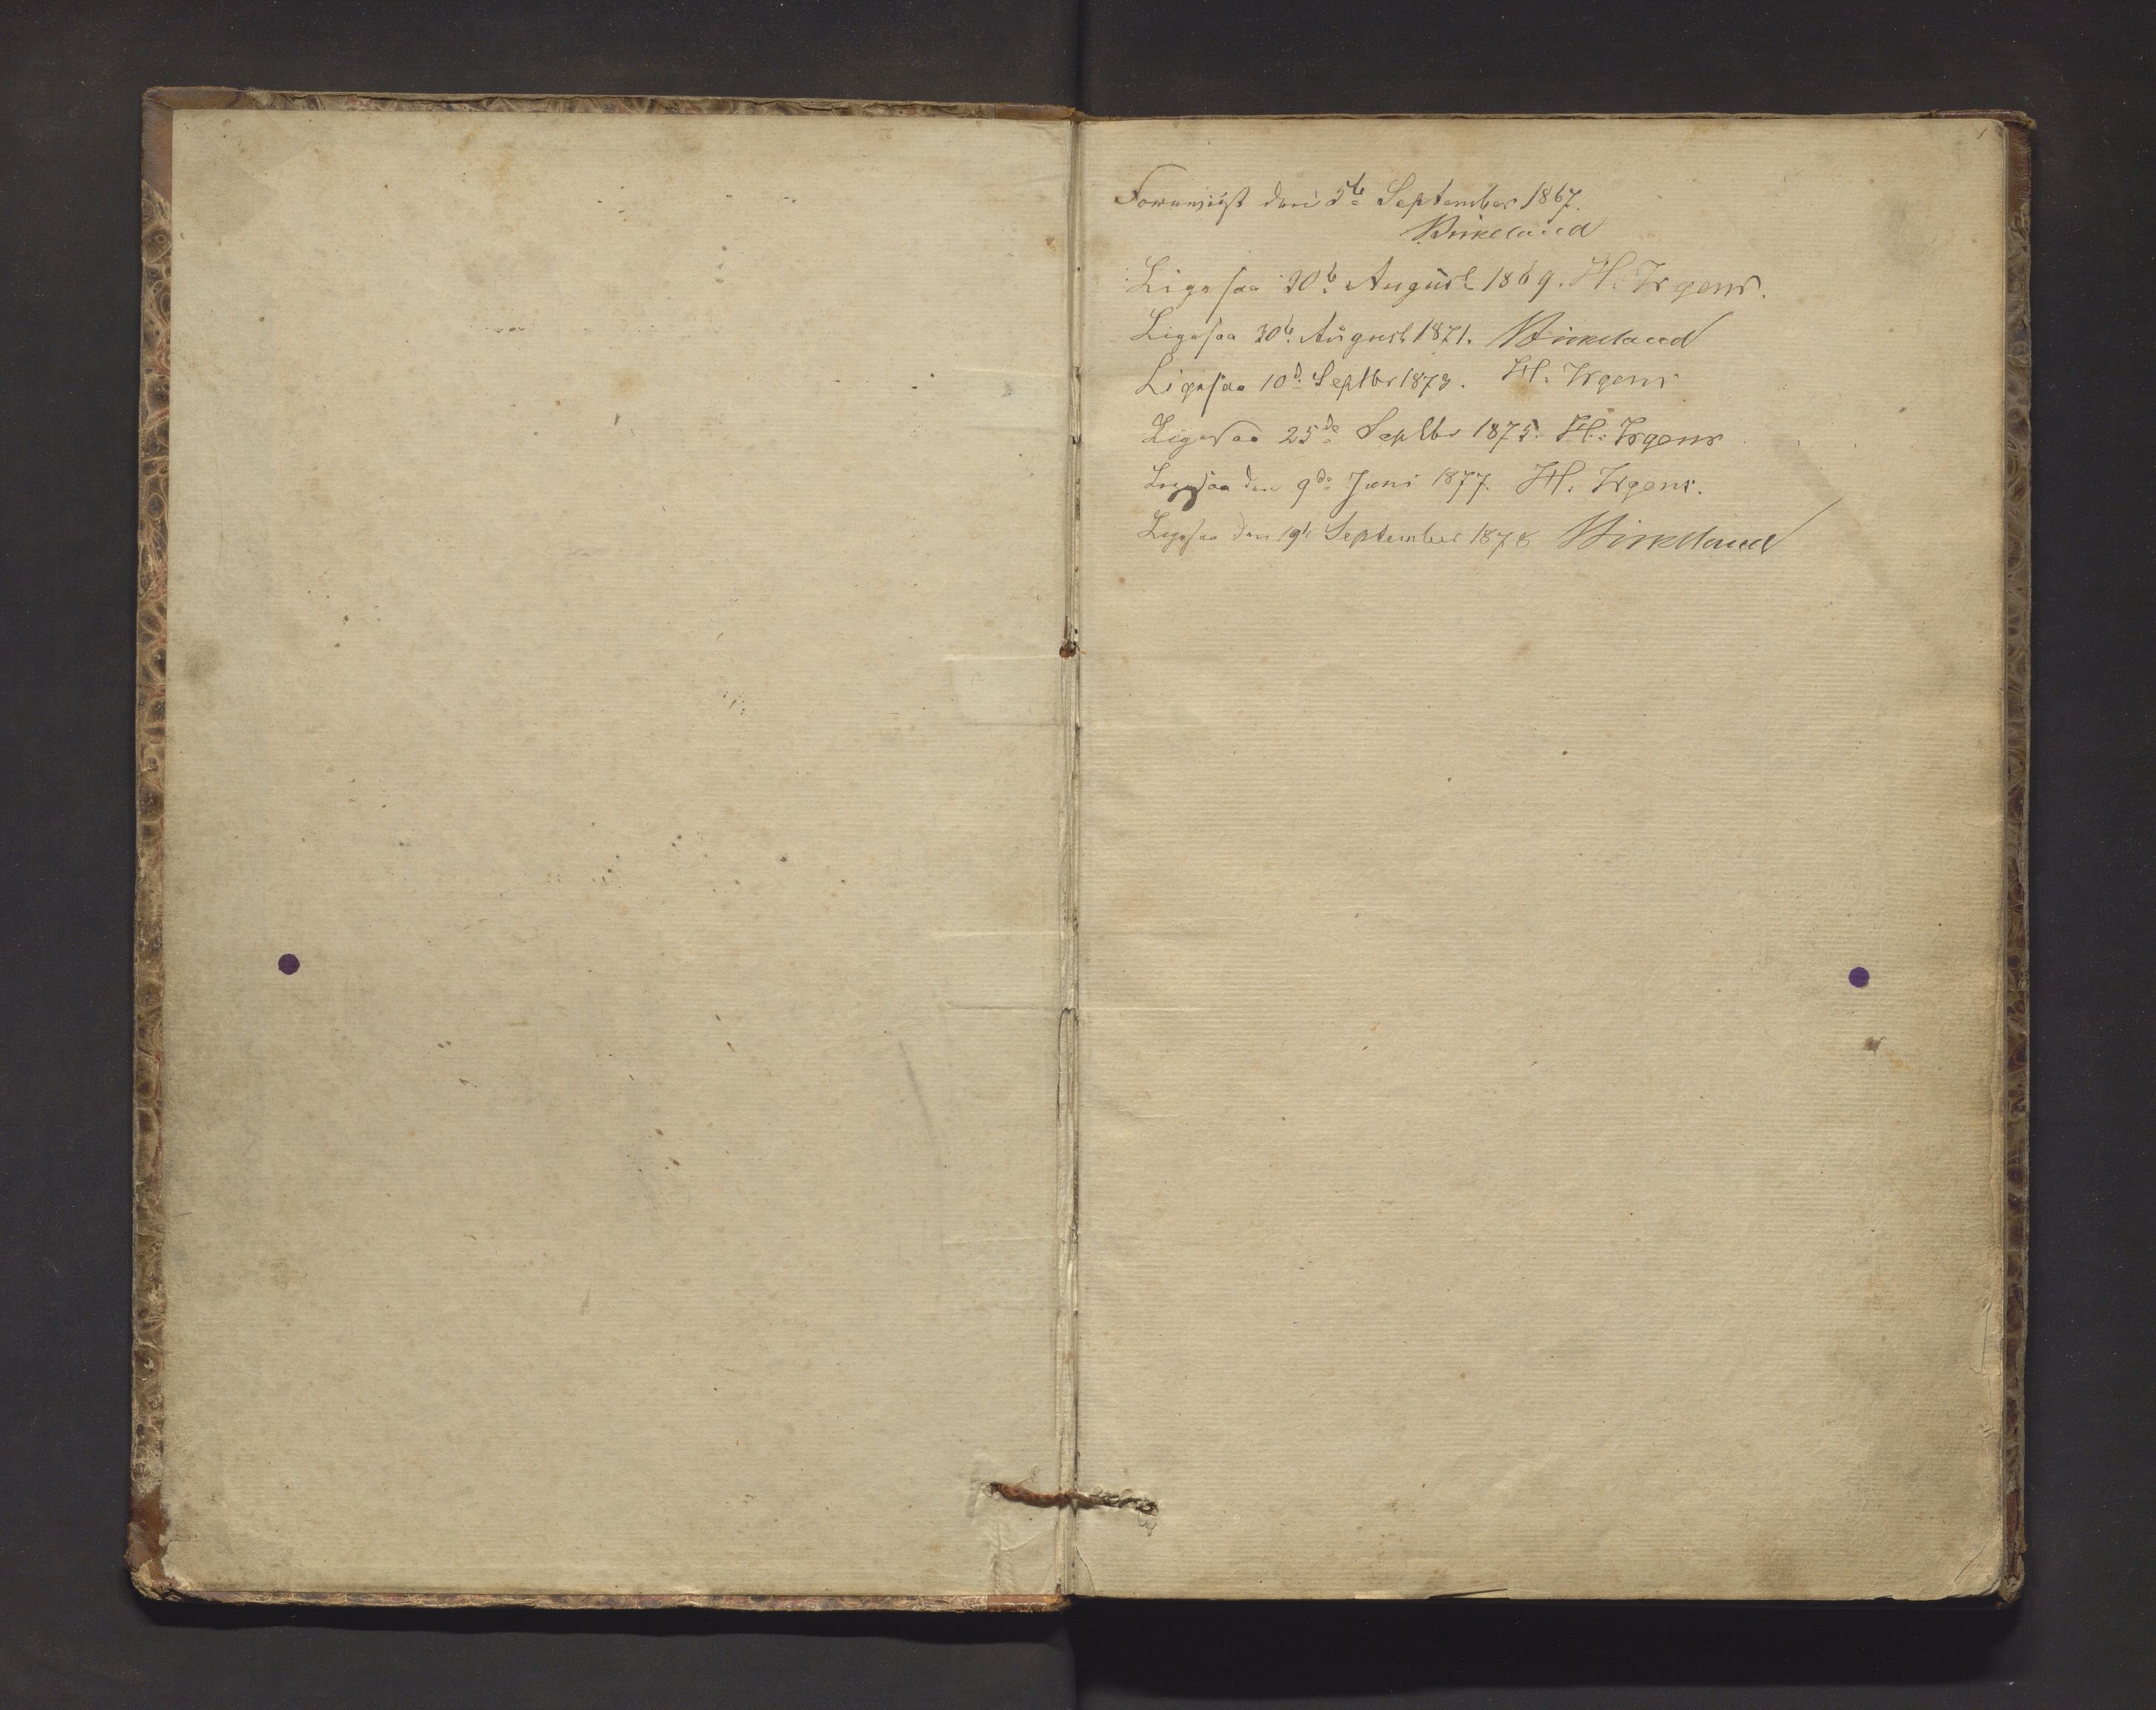 1
Foreviist den 5te September 1867.
Birkeland
Ligesaa 30te August 1869. H. Irgens.
Ligesaa 30te August 1871. Birkeland
Ligesaa 10d Septbr 1873. H. Irgens
Ligesaa 25de Septbr 1875. H. Irgens
Ligesaa den 9de Juni 1877. H. Irgens.
Ligesaa den 19de September 1878 Birkeland